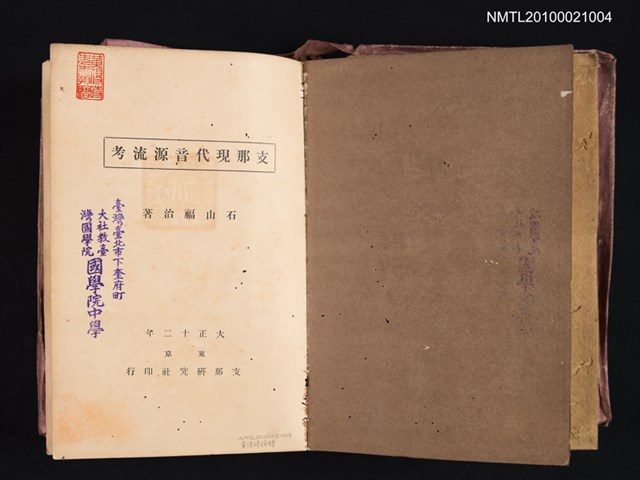 NMTL20100021004
支那現代音源流考
石山福治著
大正十二年
東京
支那研究社印行
臺灣臺北市下奎府町
大社教臺
灣國學院
國學院中學